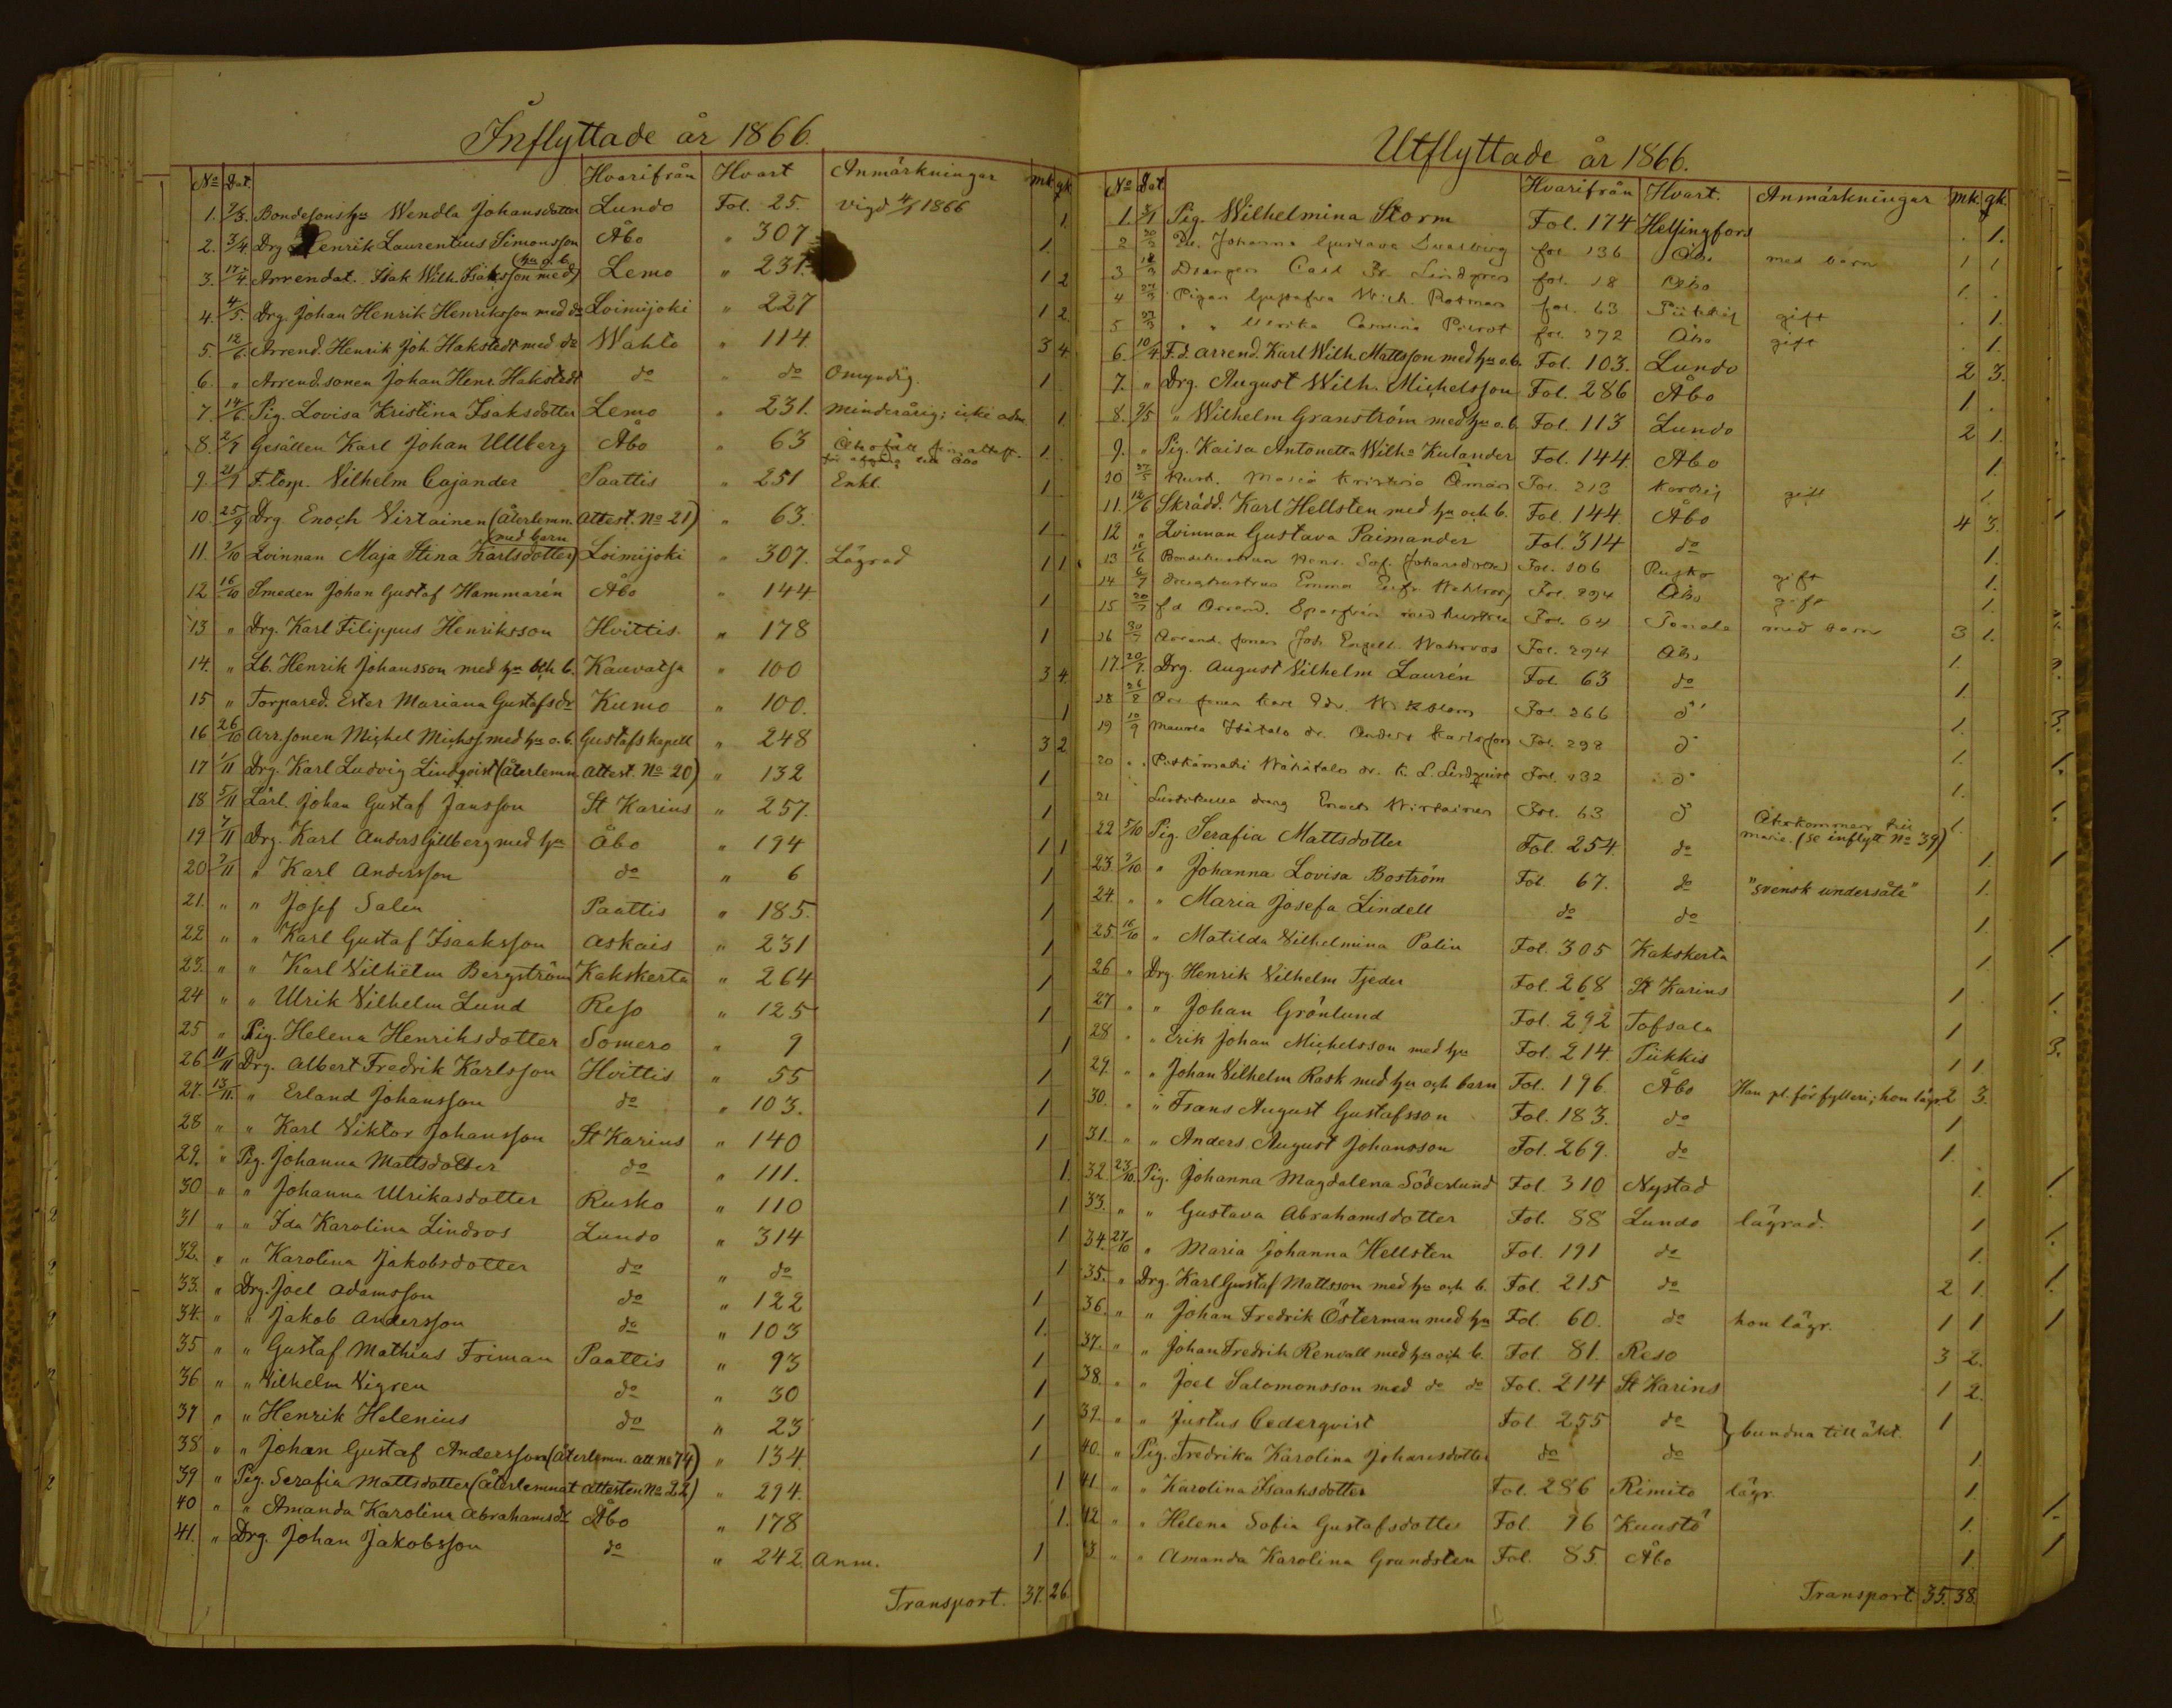 Inflyttade år 1866.
No Dat. Hvarifrån Hvart Anmärkningar mk. qk.
1. 2/3. Bondesons hu Wendla Johansdotter Lundo Fol. 25. Vigd 4/1 1866 1.
2. 3/4. Drg Henrik Laurentius Simonsson Åbo " 307 1.
3. 17/4. Arrendat. Isak Wilh. Isaksson med (hu o. b.) Lemo " 231. 1 2
4. 4/5. Drg. Johan Henrik Henriksson med do Loimijoki " 227 1 2.
5. 12/6. Arrend. Henrik Joh. Hakstedt med do Wahto " 114 3 4
6. " Arrend. sonen Johan Henr. Hakstedt do " do Omyndig. 1
7. 14/6 Pig. Lovisa Kristina Isaksdotter Lemo " 231. Minderårig; icke adm. 1.
8. 2/7 Gesällen Karl Johan Ullberg Åbo " 63 1
9. 21/7 F. torp. Vilhelm Cajander Paattis " 251 Enkl. 1
10. 25/9 Drg Enoch Virtainen (återlemn. Attest. No 21) " 63. 1
11. 2/10 Qvinnan Maja Stina Karlsdotter (med barn) Loimijoki " 307. Lägrad 1 1
12 16/10 Smeden Johan Gustaf Hammarén Åbo " 144 1
13 " Drg. Karl Filippus Henriksson Hvittis " 178 1
14. " Lb. Henrik Johansson med hu och b. Kauvatsa " 100 3 4
15 " Torpared. Ester Mariana Gustafsdr Kumo " 100. 1
16 26/10 Arr. sonen Michel Michelss. med hu o. b. Gustafs kapell " 248 3 2
17 1/11 Drg. Karl Ludvig Lindqvist (återlemn. Attest. No 20) " 132 1
18 5/11 Lärl. Johan Gustaf Jansson St Karins " 257. 1
19 7/11 Drg. Karl Anders Gillberg med hu Åbo " 194 1 1
20 9/11 " Karl Andersson do " 6 1
21. " " Josef Salen Paattis " 185. 1
22 " " Karl Gustaf Isaaksson Askais " 231 1
23. " " Karl Vilhelm Bergström Kakskerta " 264 1
24 " " Ulrik Vilhelm Lund Reso " 125 1
25 " Pig. Helena Henriksdotter Somero " 9 1
26 11/11 Drg. Albert Fredrik Karlsson Hvittis " 55 1
27. 13/11. " Erland Johansson do " 103. 1
28 " " Karl Viktor Johansson St Karins " 140 1
29. " Pig. Johanna Mattsdotter do " 111. 1.
30 " " Johanna Ulrikasdotter Rusko " 110 1
31 " " Ida Karolina Lindros Lundo " 314 1
32. " " Karolina Jakobsdotter do " do 1
33. " Drg. Joel Adamsson do " 122 1
34. " " Jakob Andersson do " 103 1.
35 " " Gustaf Mathias Friman Paattis " 93 1
36 " " Vilhelm Vigren do " 30 1
37 " " Henrik Helenius do " 23 1
38 " " Johan Gustaf Andersson (återlemn. att. No 74) " 134. 1
39 " Pig. Serafia Mattsdotter (återlemnat attesten No 22) " 294. 1
40 " " Amanda Karolina Abrahamsdr Åbo " 178 1.
41. " Drg. Johan Jakobsson do " 242. Anm. 1
Transport. 37. 26.
Utflyttade år 1866.
No Dat Hvarifrån Hvart. Anmärkningar mk. qk.
1. Pig. Wilhelmina Storm Fol. 174 Helsingfors 1.
2 20/2 Johanna Gustava fol. 136 Åbo med barn 1 1
3 Drängen Carl Fr. Lindgren fol. 18 Åbo 1.
4 27/3 Pigan Gustafva fol. 63 Piikkis gift 1.
5 27/3 " Ulrika fol. 272 Åbo gift 1.
6. 10/4 F. d. arrend. Karl Wilh. Mattsson med hu o. b. Fol. 103. Lundo 2 3.
7. " Drg. August Wilh. Michelsson Fol. 286 Åbo 1.
8. 9/5 " Wilhelm Granström med hu o. b. Fol. 113 Lundo 2 1.
9. " Pig. Kaisa Antonetta Wilha Kulander Fol. 144. Åbo 1.
10 27/5 Maria Kristina Öman Fol. 213 gift 1
11. 12/6 Skrädd. Karl Hellsten med hu och b. Fol. 144. Åbo 4 3.
12 " Qvinnan Gustava Paimander Fol. 314 do 1.
13 Johansdotter Fol. 106 Rusko gift 1.
14 Emma Fol. 294 Åbo gift 1.
15 20/7 f d Arrend. med hustru Fol. 64 med barn 3 1.
16 30/7 Arrend. sonen Joh. Engelb. Wahlroos Fol. 294 Åbo 1.
17. 20/8. Drg. August Vilhelm Laurén Fol. 63 do 1
18 26/8 Fol. 266 do 1.
19 10/9 Maunla Isotalo dr. Anders Karlsson Fol. 298 do 1.
20 " dr. K. L. Lindqvist Fol. 132 do 1.
21 dräng Enoch Wirtainen Fol. 63 do Återkommen till Marie. (se inflytt No 39) 1.
22 5/10 Pig. Serafia Mattsdotter Fol. 254. do 1
23. 9/10. " Johanna Lovisa Boström Fol. 67. do "svensk undersåte" 1.
24. " " Maria Josefa Lindell do do 1.
25. 16/10 " Matilda Vilhelmina Palin Fol. 305 Kakskerta 1.
26 " Drg. Henrik Vilhelm Tjeder Fol. 268 St Karins 1
27 " " Johan Grönlund Fol. 292 Tofsala 1
28 " " Erik Johan Michelsson med hu Fol. 214. Piikkis 1 1
29. " " Johan Vilhelm Rask med hu och barn Fol. 196. Åbo Han pl. för fylleri; hon lägr. 2 3.
30. " " Frans August Gustafsson Fol. 183. do 1
31. " " Anders August Johansson Fol. 269. do 1.
32. 23/10. Pig. Johanna Magdalena Söderlund Fol. 310 Nystad 1.
33. " " Gustava Abrahamsdotter Fol. 88 Lundo lägrad. 1
34. 27/10 " Maria Johanna Hellsten Fol. 191 do 1.
35. " Drg. Karl Gustaf Mattsson med hu och b. Fol. 215 do 2 1.
36. " " Johan Fredrik Österman med hu Fol. 60. do hon lägr. 1 1
37. " " Johan Fredrik Renvall med hu och b. Fol 81. Reso 3 2.
38. " " Joel Salomonsson med do do Fol. 214 St Karins 1 2.
39. " " Justus Cederqvist Fol. 255 do } bundna till äkt. 1
40. " Pig. Fredrika Karolina Johansdotter do do 1
41. " " Karolina Isaaksdotter Fol. 286 Rimito lägr. 1.
42 " " Helena Sofia Gustafsdotter Fol. 96 Kuustö 1.
43. " " Amanda Karolina Grandsten Fol. 85. Åbo 1.
Transport 35. 38.